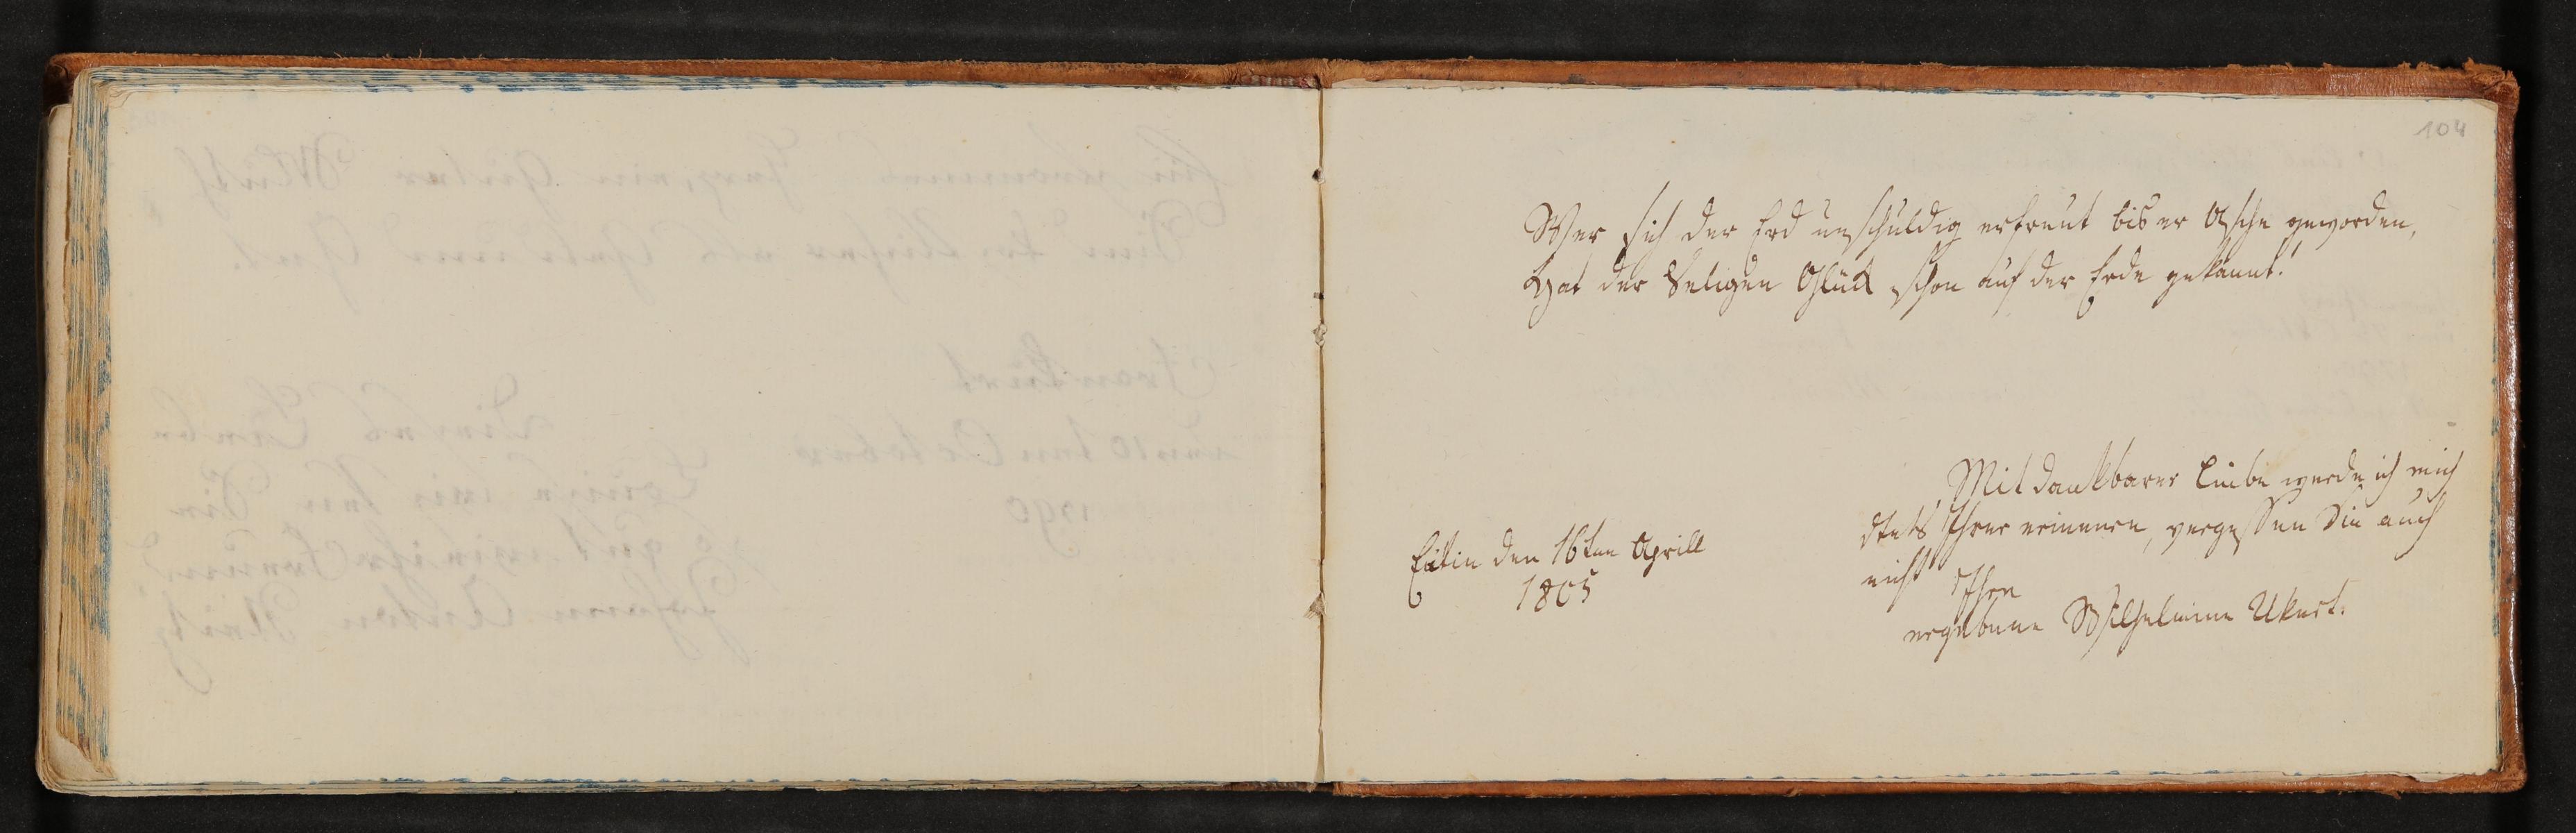 104
Wer sich der Erd unschuldig erfreut bis er Asche geworden,
Hat der Seligen Glück schon auf der Erde gekannt!
Mit dankbarer Liebe werde ich mich
stets Ihrer erinnern, vergessen Sie auch
nicht Ihre
ergebene Wilhelmine Ukert.
Eutin den 16ten Aprill
1805